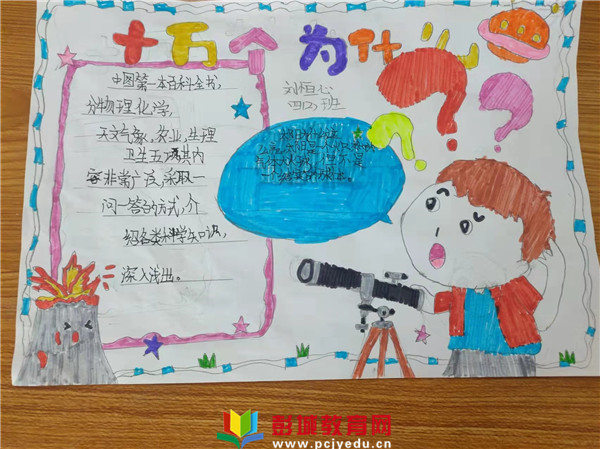 十万个为什
刘恒心
四(2)班
中国第一本百科全书,
分物理化学,
天文气象,农业,生理
卫生五
其内
容非常广泛,采取一
问一答的方式,介
绍各类科学知识,
深入浅出。
太阳是一个
彭城教育网
www.pcjyedu.cn